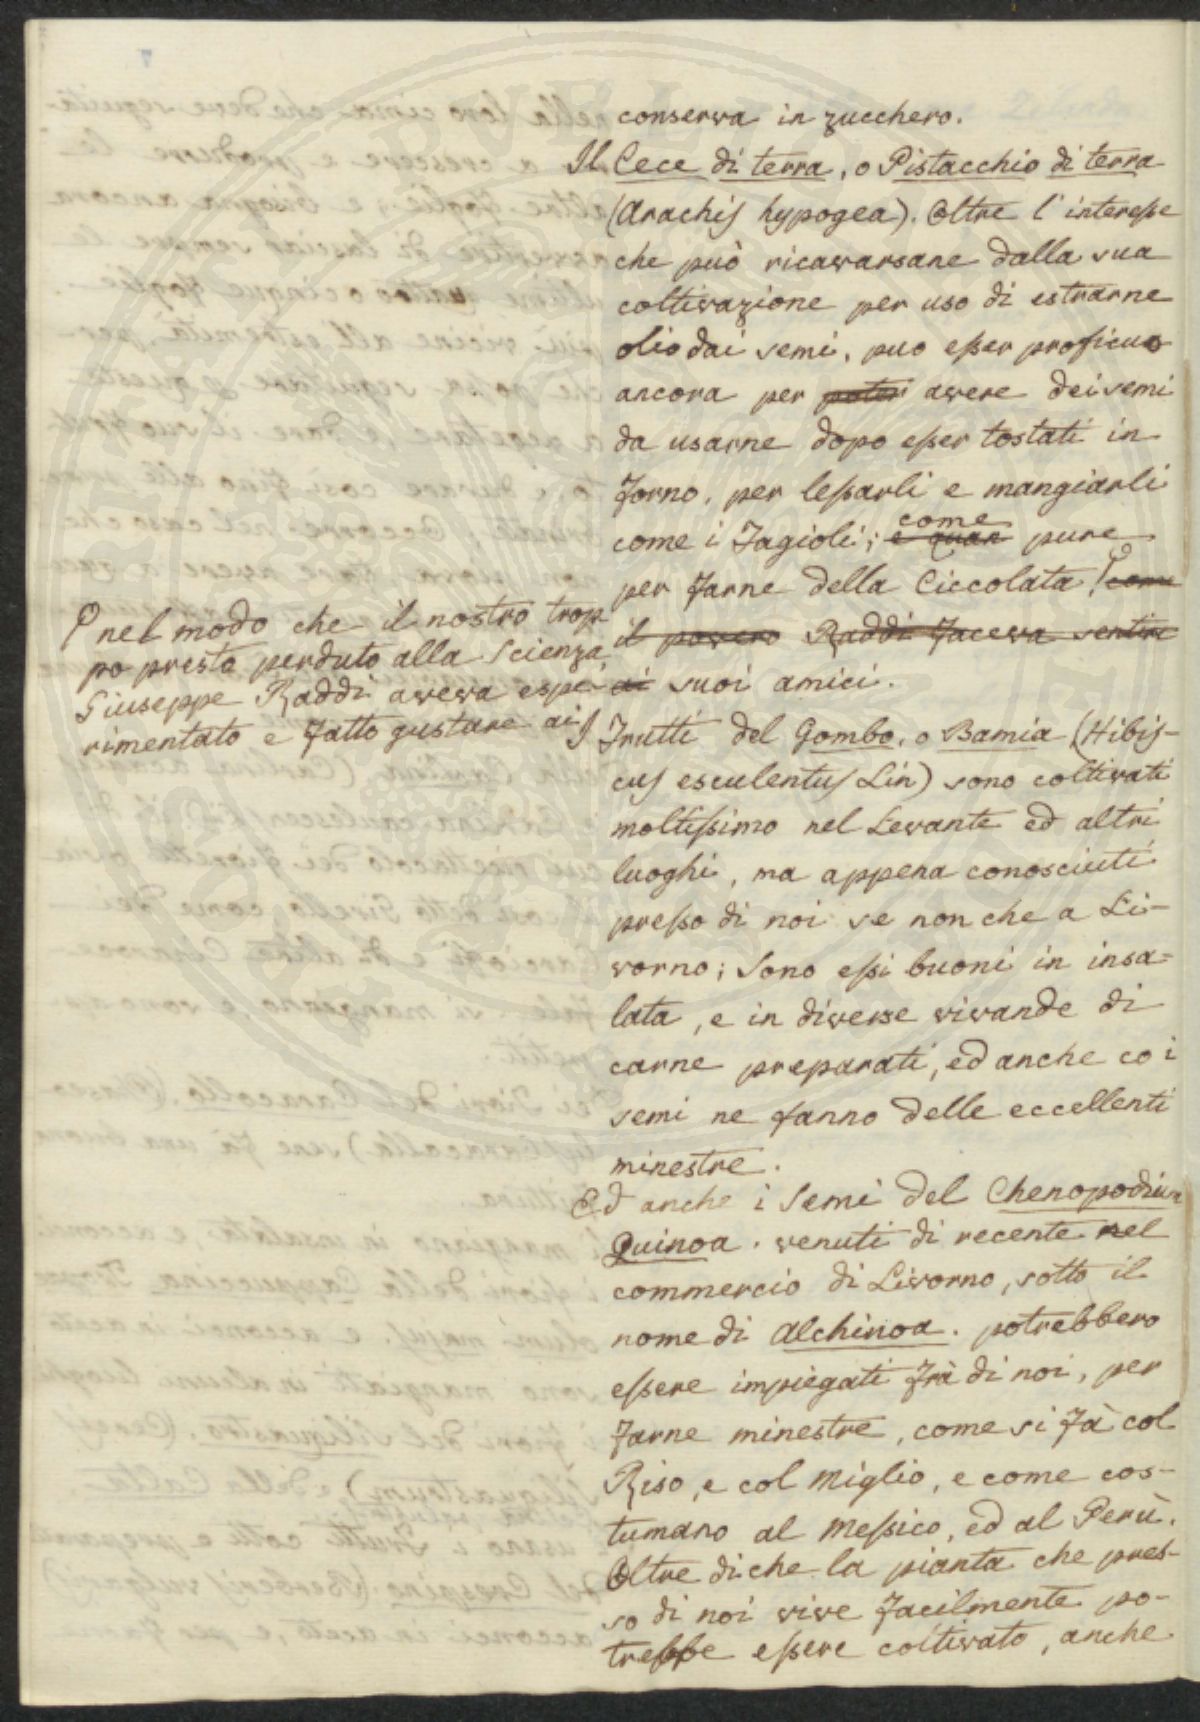 conserva in zucchero.
Il Cece di terra, o Pistacchio di terra
(Arachis hypogea). Oltre l'interesse
che può ricavarsane dalla sua
coltivazione per uso di estrarne
olio dai semi, puo esser proficuo
ancora per poter avere dei semi
da usarne dopo esser tostati in
forno, per lessarli e mangiarli
come i Fagioli; e quan come pure
per farne della Ciccolata, come
il povero Raddi faceva sentire
ai suoi amici.
nel modo che il nostro trop
po presto perduto alla Scienza
Giuseppe Raddi aveva espe-
rimentato e fatto gustare ai
I Frutti del Gombo, o Bamia (Hibis-
cus esculentus Lin) sono coltivati
moltissimo nel Levante ed altri
luoghi, ma appena conosciuti
presso di noi se non che a Li-
vorno; Sono essi buoni in insa-
lata, e in diverse vivande di
carne preparati, ed anche coi
semi ne fanno delle eccellenti
minestre.
Ed anche i Semi del Chenopodium
Quinoa. venuti di recente nel
commercio di Livorno, sotto il
nome di Alchinoa. potrebbero
essere impiegati frà di noi, per
farne minestre, come si fà col
Riso, e col Miglio, e come cos-
tumano al Messico, ed al Perù.
Oltre diche la pianta che pres-
so di noi vive facilmente po-
trebbe essere coltivato, anche